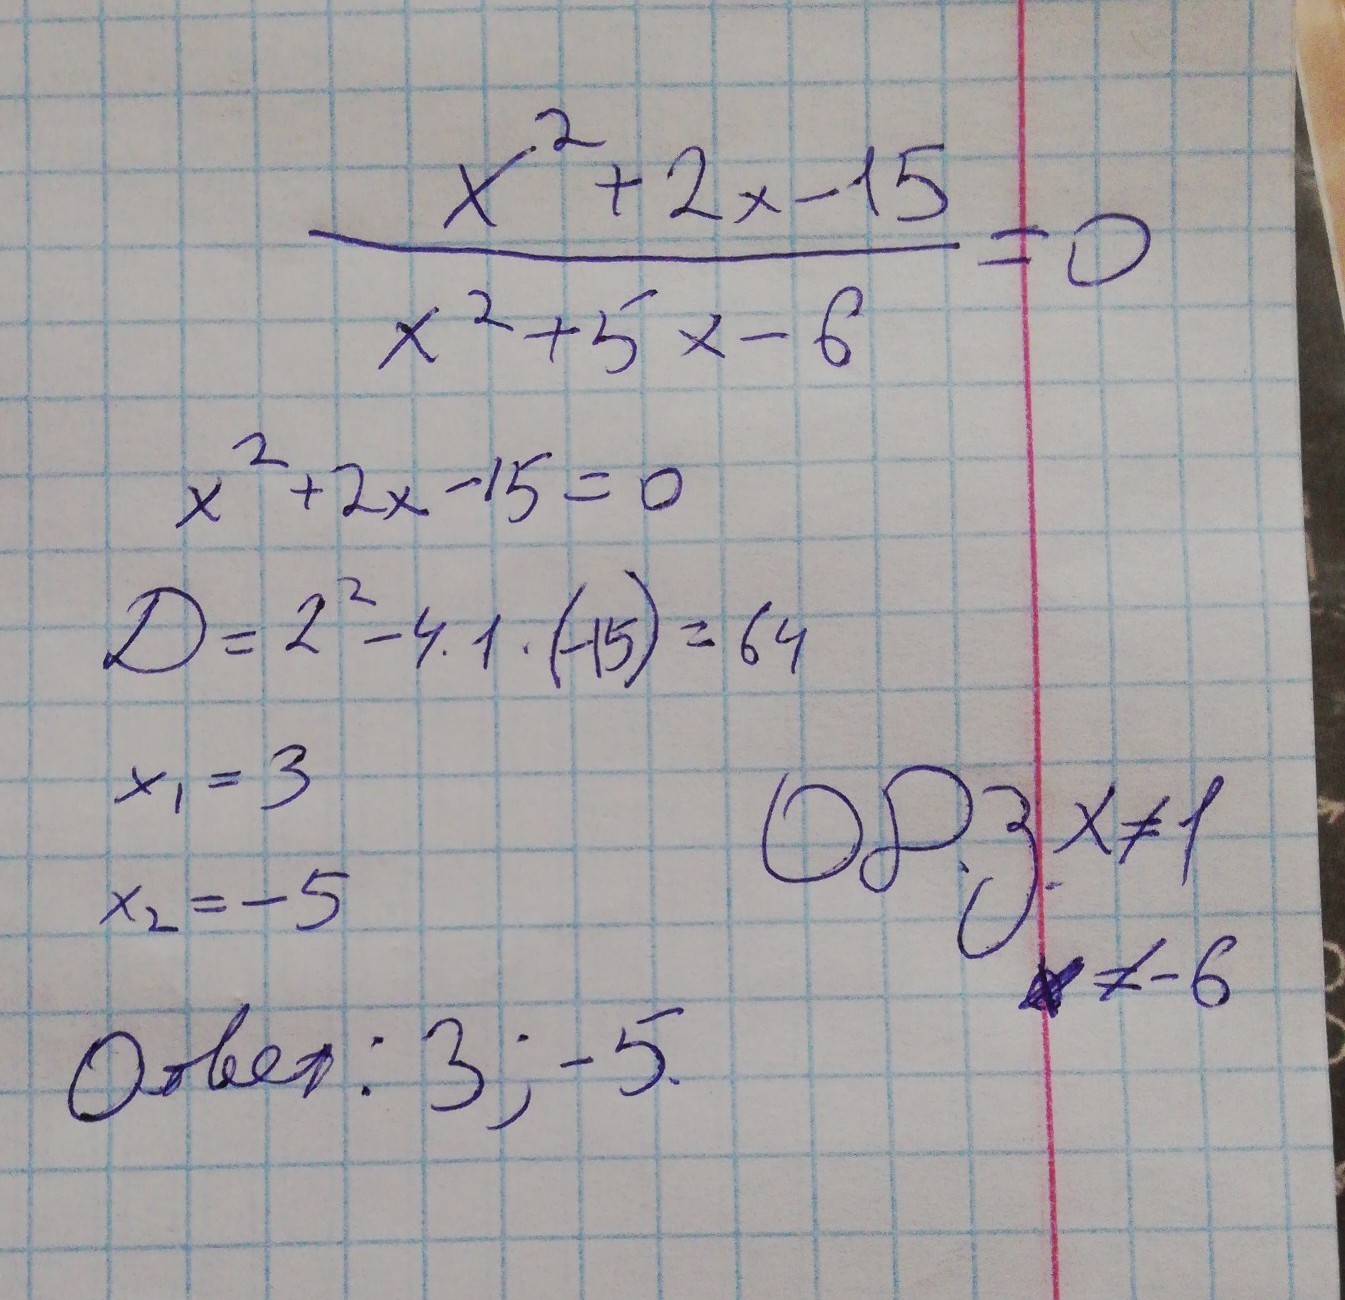 x² + 2x - 15
x² + 5x - 6
= 0
x² + 2x - 15 = 0
D = 2² - 4 · 1 · (-15) = 64
x₁ = 3
x₂ = -5
ОДЗ x ≠ 1
x ≠ -6
Ответ: 3; -5.